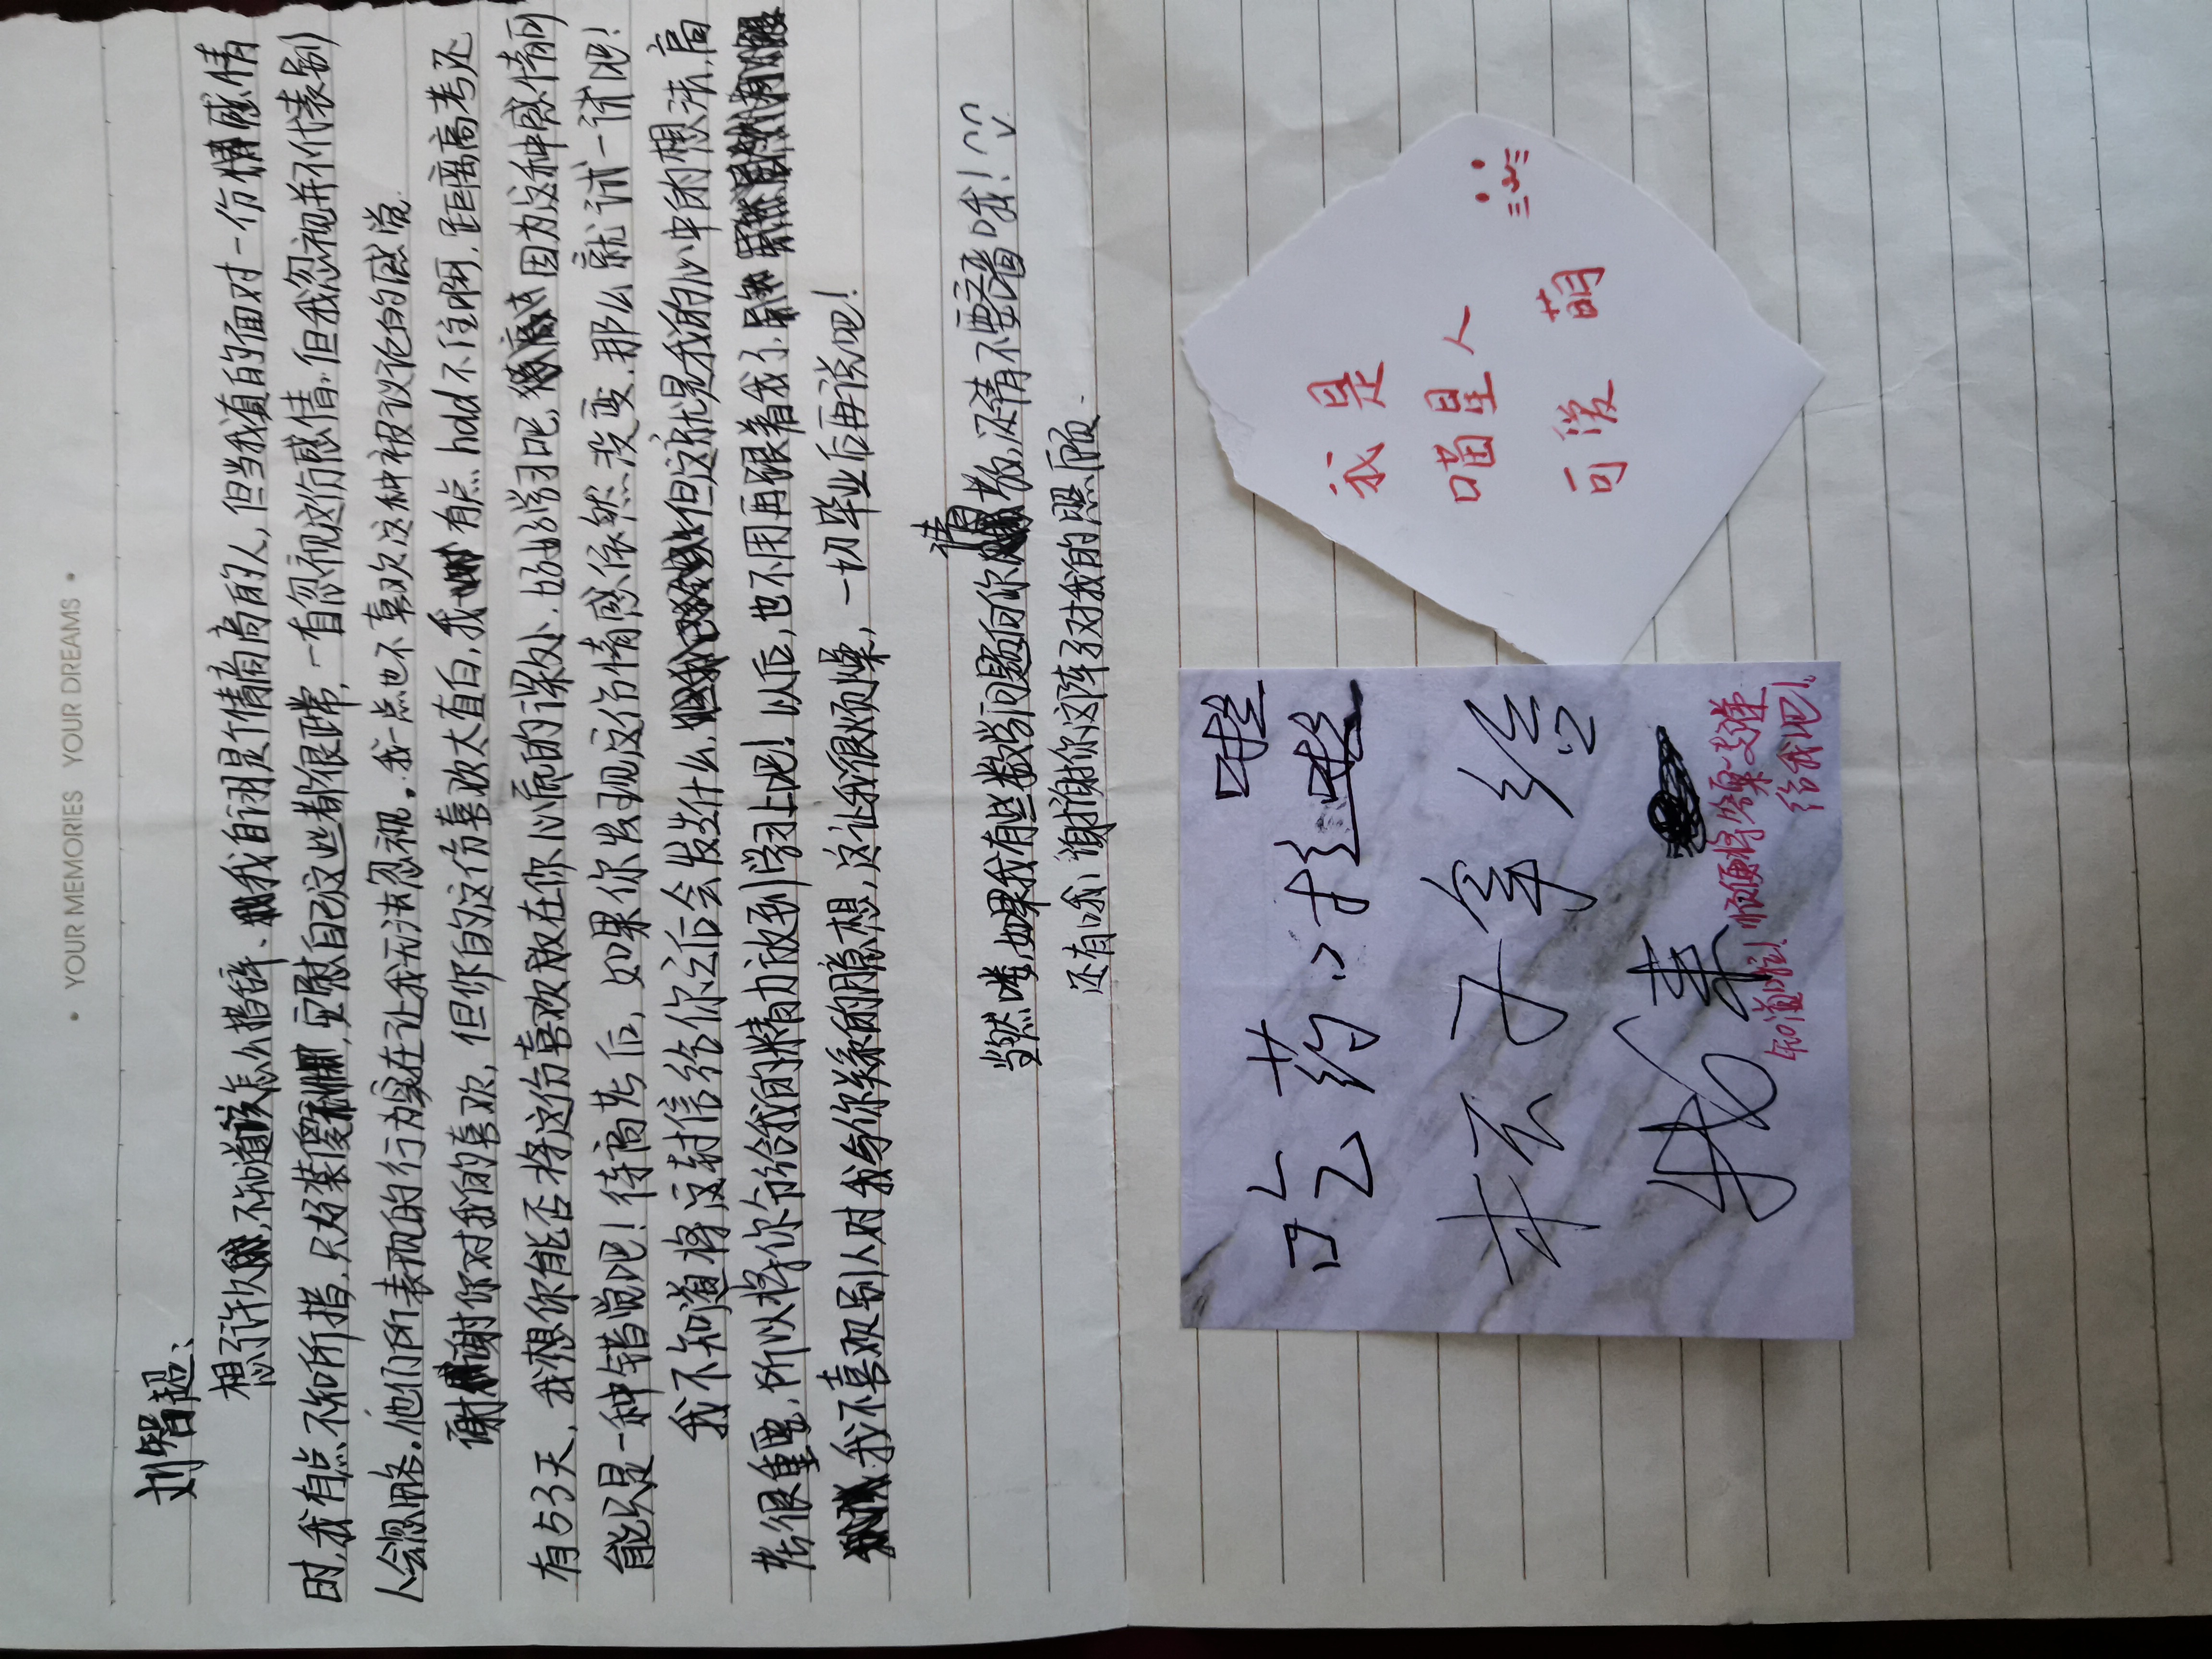 • YOUR MEMORIES YOUR DREAMS •
刘智超：
想了许久，不知道该怎么措辞、我自诩是个情商高的人，但当我真的面对一份感情
时，我有点不知所措，只好装傻，安慰自己这些都很正常，一直忽视这份感情。但我忽视并不代表别
人会忽略。他们所表现的行为实在让我无法忽视。我一点也不喜欢这种被议论的感觉
谢谢你对我的喜欢，但你的这份喜欢太直白，我有点hold不住啊，距离高考还
有53天，我想你能否将这份喜欢放在你心底的深处、好好学习吧，因为这种感情可
能只是一种错觉吧！待高考后，如果你发现这份情感依然没变、那么就试一试吧！
我不知道将这封信给你之后会发生什么，但这就是我的心中的想法，高
考很重要，所以将你分给我的精力放到学习上吧！以后，也不用再跟着我了
我不喜欢别人对我与你关系的臆想，这让我很烦燥，一切毕业后再说吧！
当然喽，如果我有些数学问题向你请教，还请不要吝啬哦！
还有哦，谢谢你这阵子对我的照顾
吃药啦啦
杯子拿给
我来
知道啦！顺便将答案一支递
给我吧！
我是
喵星人
可爱 萌